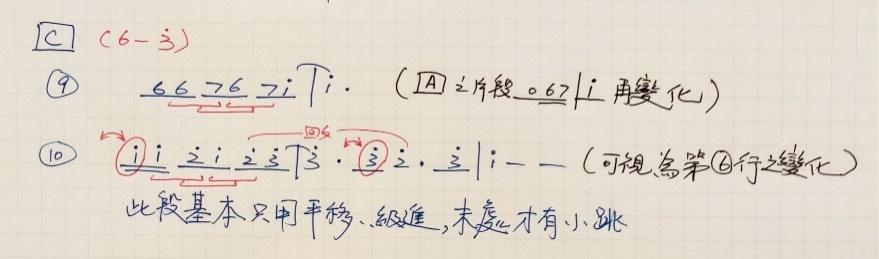 C (6-3̇)
⑨ 6 6 7 6 7 i | i · (A 之片段 0 67 | i 再變化)
⑩ i i 2̇ i 2̇ 3̇ | 3̇ · 3̇ 2̇ · 3̇ | i - - (可視為第⑥行之變化)
此段基本只用平移、級進,末處才有小跳